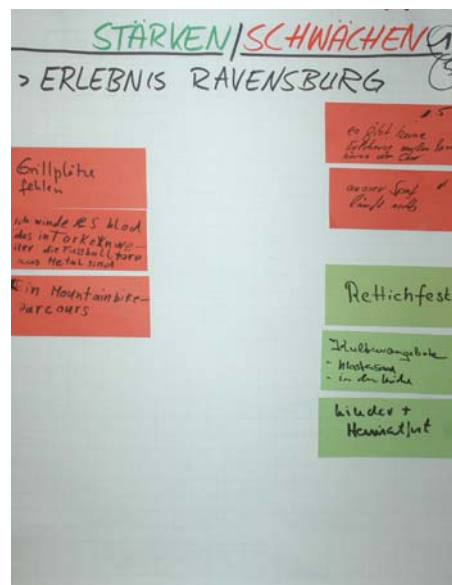 STÄRKEN/SCHWÄCHEN
> ERLEBNIS RAVENSBURG
Grillplätze
fehlen
ich winde es blöd
das in Torkenwe-
iler die Fussballtore
aus Metal sind
Ein Mountainbike-
Parcours
es gibt keine
ausser Spaß
läuft nichts
Rettichfest
Kulturangebote
- Klostersaal
- in der Kirche
Kinder +
Heimatfest